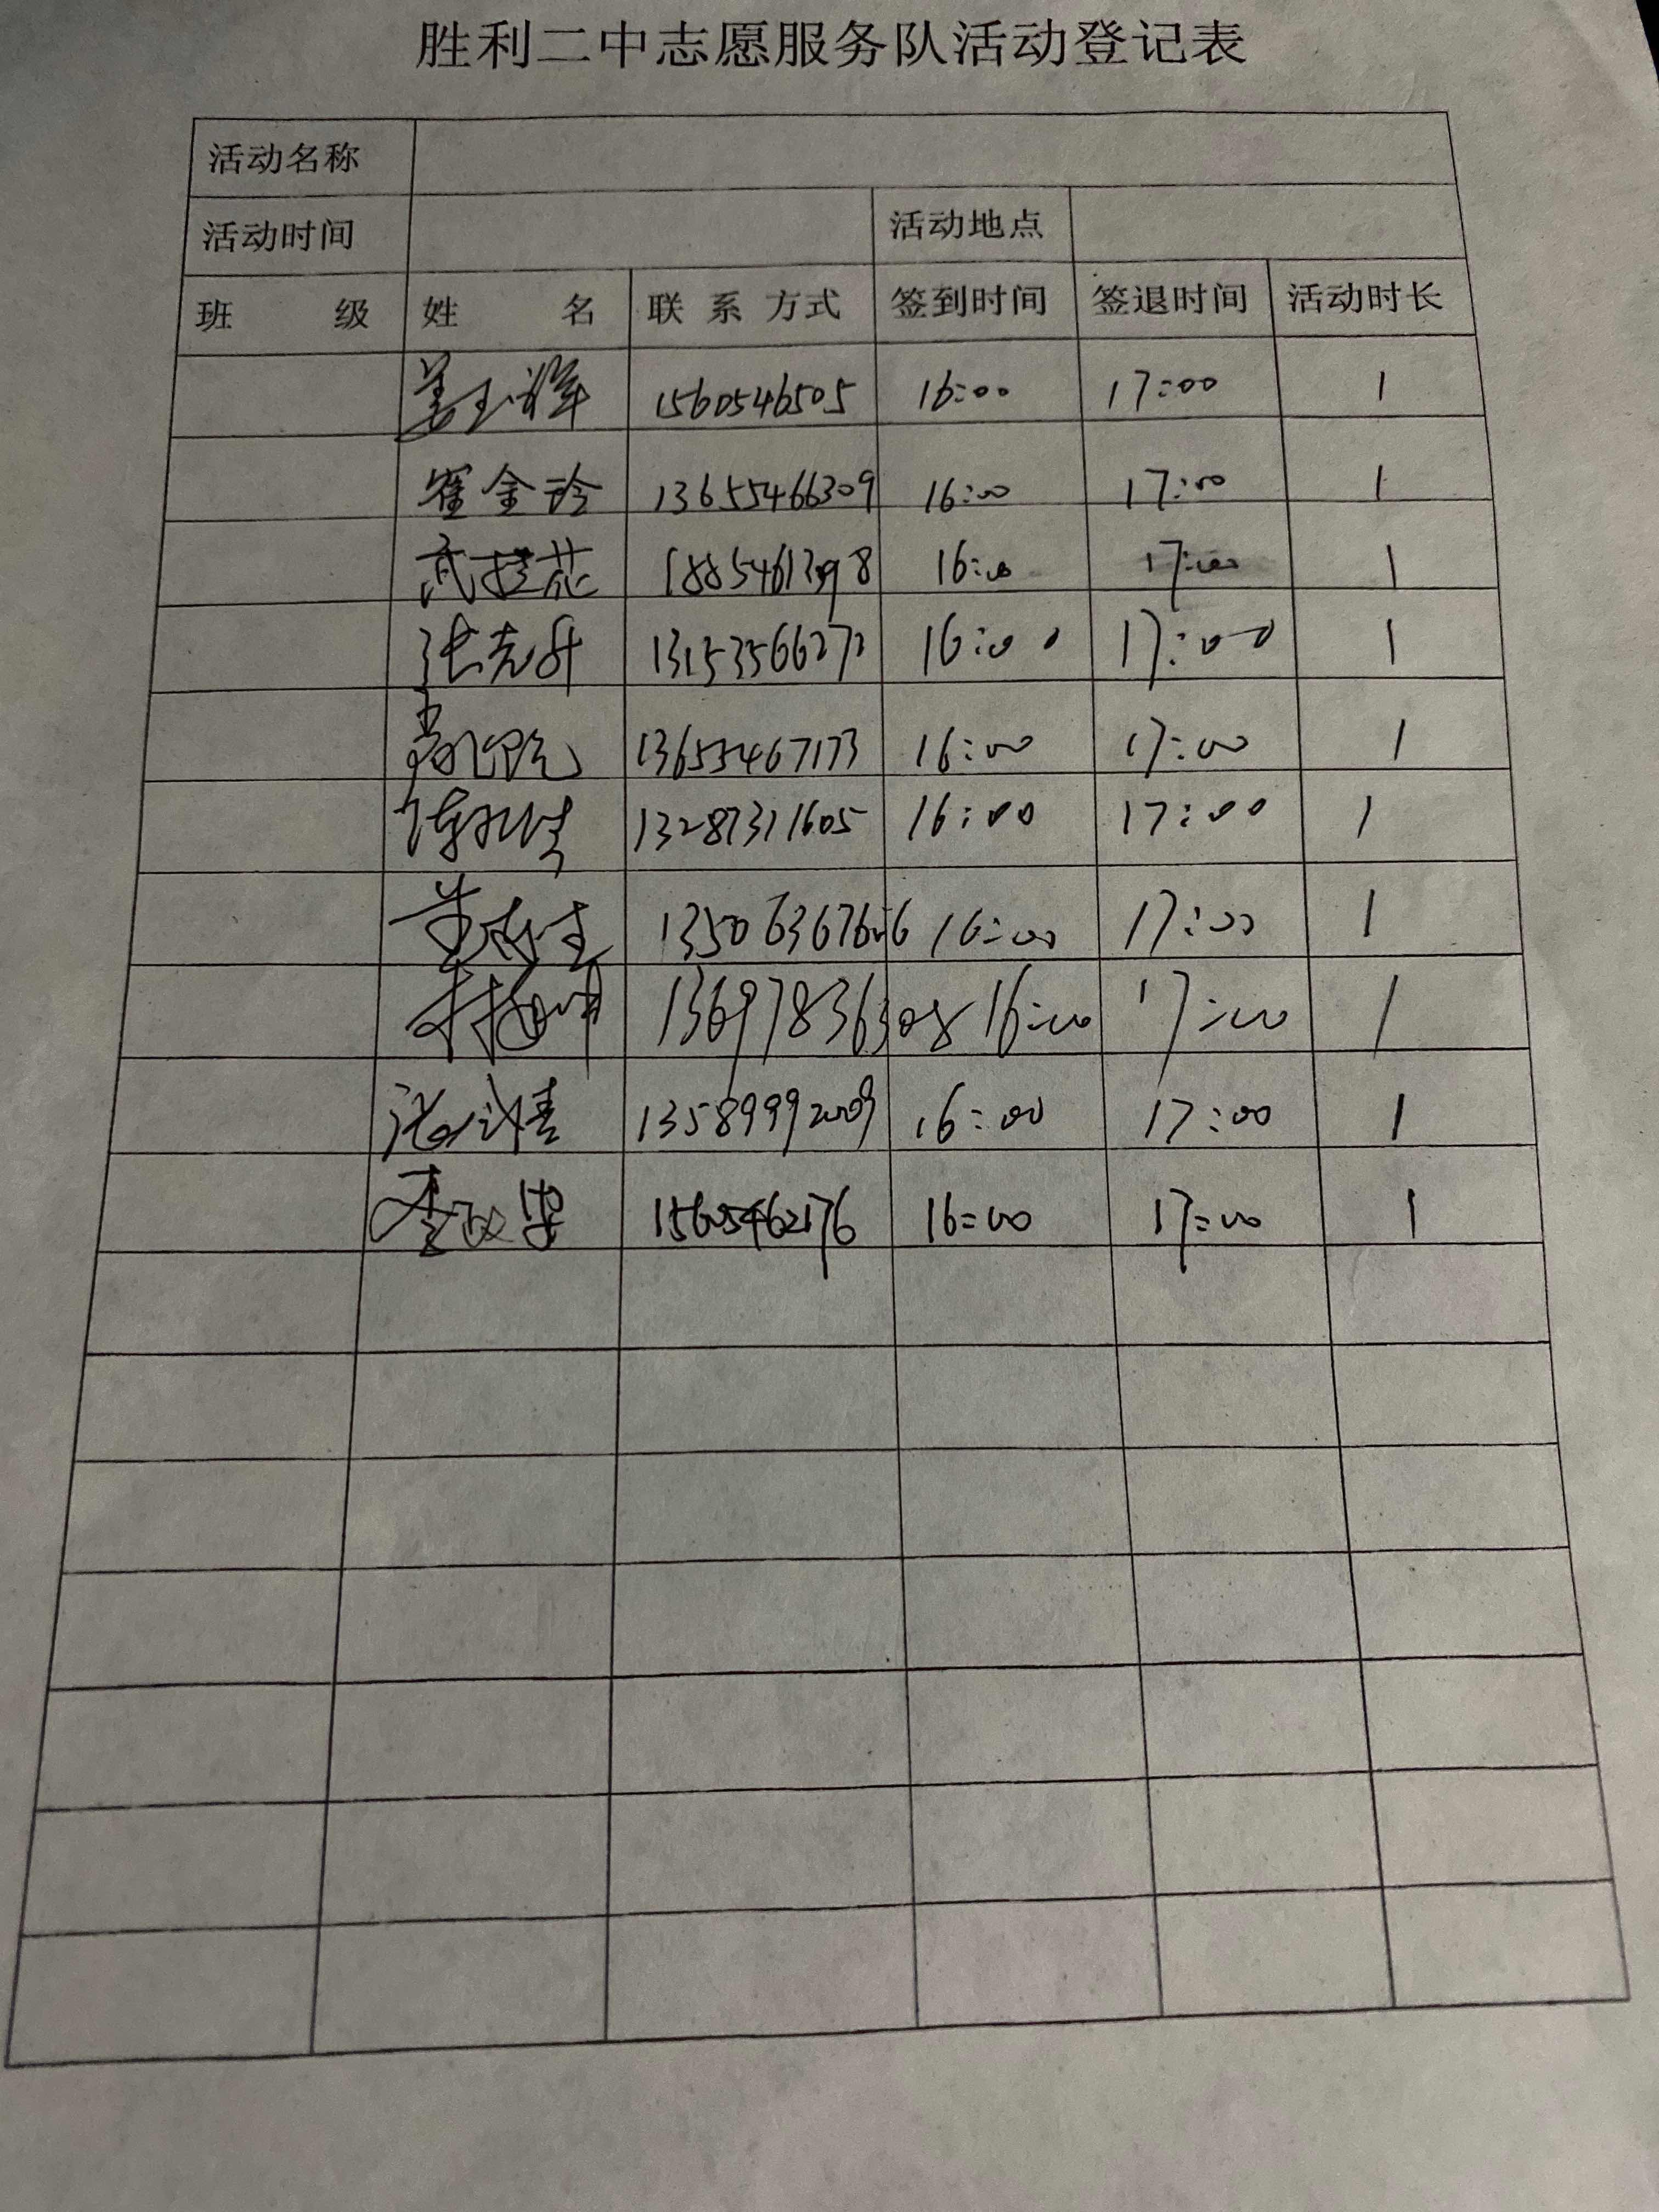 胜利二中志愿服务队活动登记表
活动名称
活动时间 活动地点
班 级 姓 名 联 系 方式 签到时间 签退时间 活动时长
1560546505 16:00 17:00 1
崔金玲 13655466309 16:00 17:00 1
16:00 17:00 1
张克升 13153566272 16:00 17:00 1
13655467173 16:00 17:00 1
13287311605 16:00 17:00 1
16:00 17:00 1
13697836308 16:00 17:00 1
13589992009 16:00 17:00 1
16:00 17:00 1